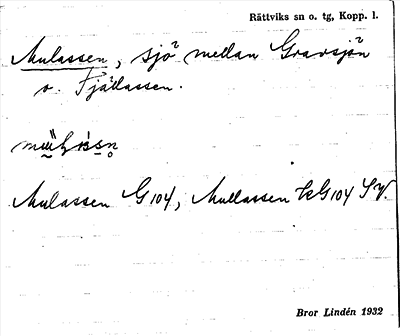 Rättviks sn o. tg, Kopp. l.
Mulassen, sjö mellan Gravsjön
o. Fjällassen.
Mulassen G 104, Mullassen EkG 104 SV.
Bror Lindén 1932